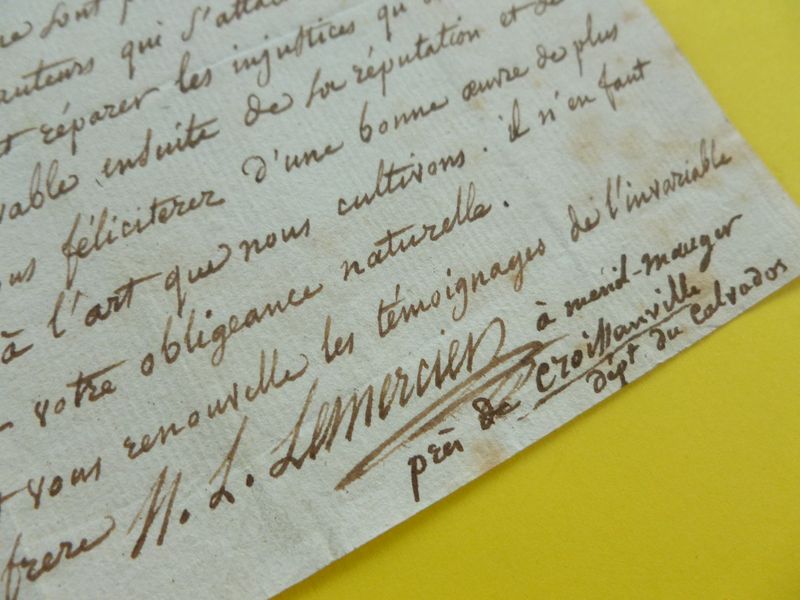 sont
auteurs qui s'atta
réparer les injustices qu
enduite de sa réputation et de
féliciterez d'une bonne œuvre de plus
à l'art que nous cultivons. il n'en faut
votre obligeance naturelle.
vous renouvelle les témoignages de l'invariable
frere N. L. Lemercier
à ménil-mauger
près de Croissanville
dépt. du Calvados